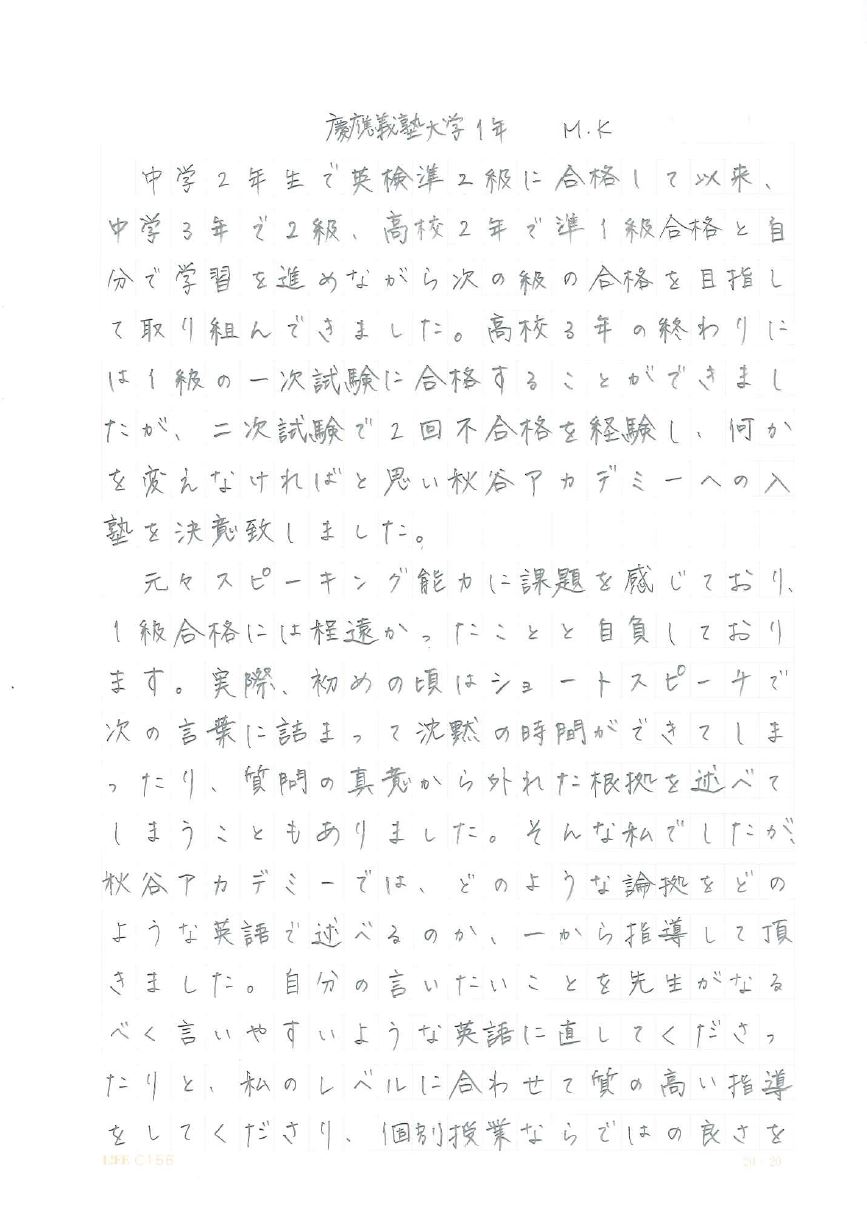 慶應義塾大学1年　M.K
中学2年生で英検準2級に合格して以来、
中学3年で2級、高校2年で準1級合格と自
分で学習を進めながら次の級の合格を目指し
て取り組んできました。高校3年の終わりに
は1級の一次試験に合格することができまし
たが、二次試験で2回不合格を経験し、何か
を変えなければと思い秋谷アカデミーへの入
塾を決意致しました。
元々スピーキング能力に課題を感じており、
1級合格には程遠かったことと自負しており
ます。実際、初めの頃はショートスピーチで
次の言葉に詰まって沈黙の時間ができてしま
ったり、質問の真意から外れた根拠を述べて
しまうこともありました。そんな私でしたが、
秋谷アカデミーでは、どのような論拠をどの
ような英語で述べるのか、一から指導して頂
きました。自分の言いたいことを先生がなる
べく言いやすいような英語に直してくださっ
たりと、私のレベルに合わせて質の高い指導
をしてくださり、個別授業ならではの良さを
LIFE C155　20×20